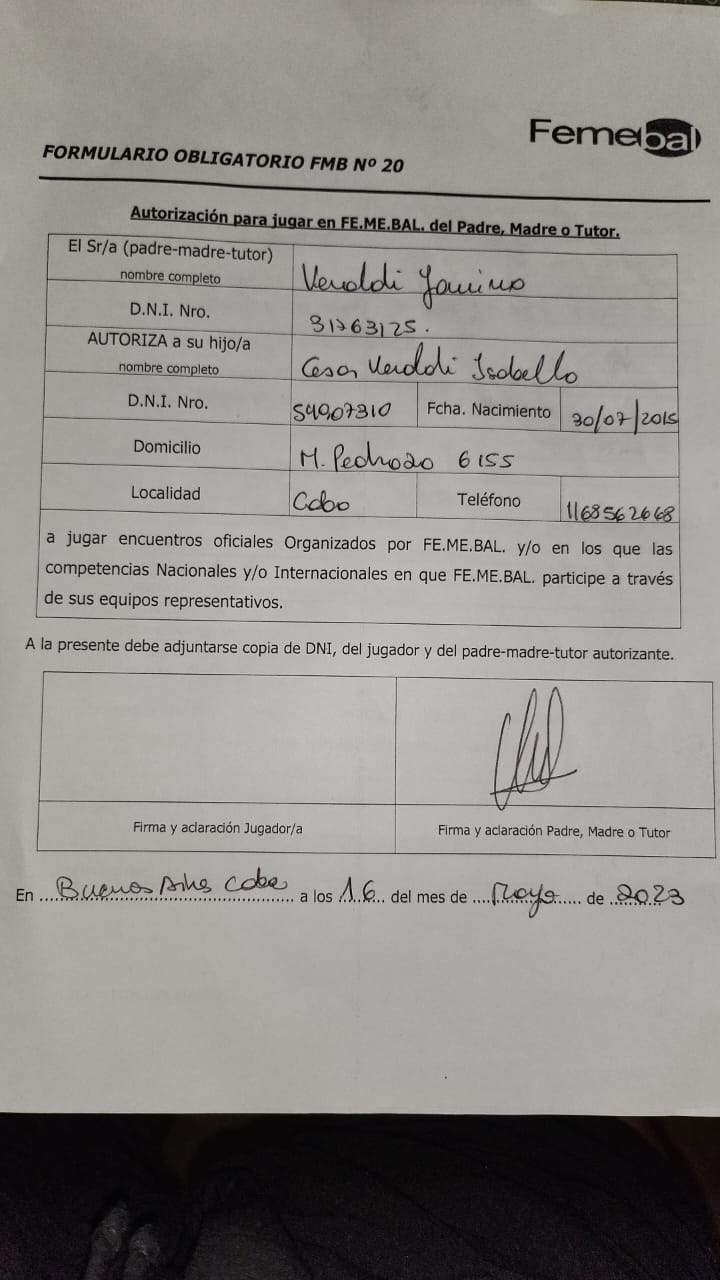 Femebal
FORMULARIO OBLIGATORIO FMB Nº 20
Autorización para jugar en FE.ME.BAL. del Padre, Madre o Tutor.
El Sr/a (padre-madre-tutor)
nombre completo
Veraldi Yanina
D.N.I. Nro.
31763125.
AUTORIZA a su hijo/a
nombre completo
Cesar Veraldi Isabella
D.N.I. Nro. 54907310 Fcha. Nacimiento 30/07/2015
Domicilio M. Pedraza 6155
Localidad Caba Teléfono 1168562668
a jugar encuentros oficiales Organizados por FE.ME.BAL. y/o en los que las
competencias Nacionales y/o Internacionales en que FE.ME.BAL. participe a través
de sus equipos representativos.
A la presente debe adjuntarse copia de DNI, del jugador y del padre-madre-tutor autorizante.
Firma y aclaración Jugador/a
Firma y aclaración Padre, Madre o Tutor
En Buenos Aires Caba a los 16 del mes de Mayo de 2023